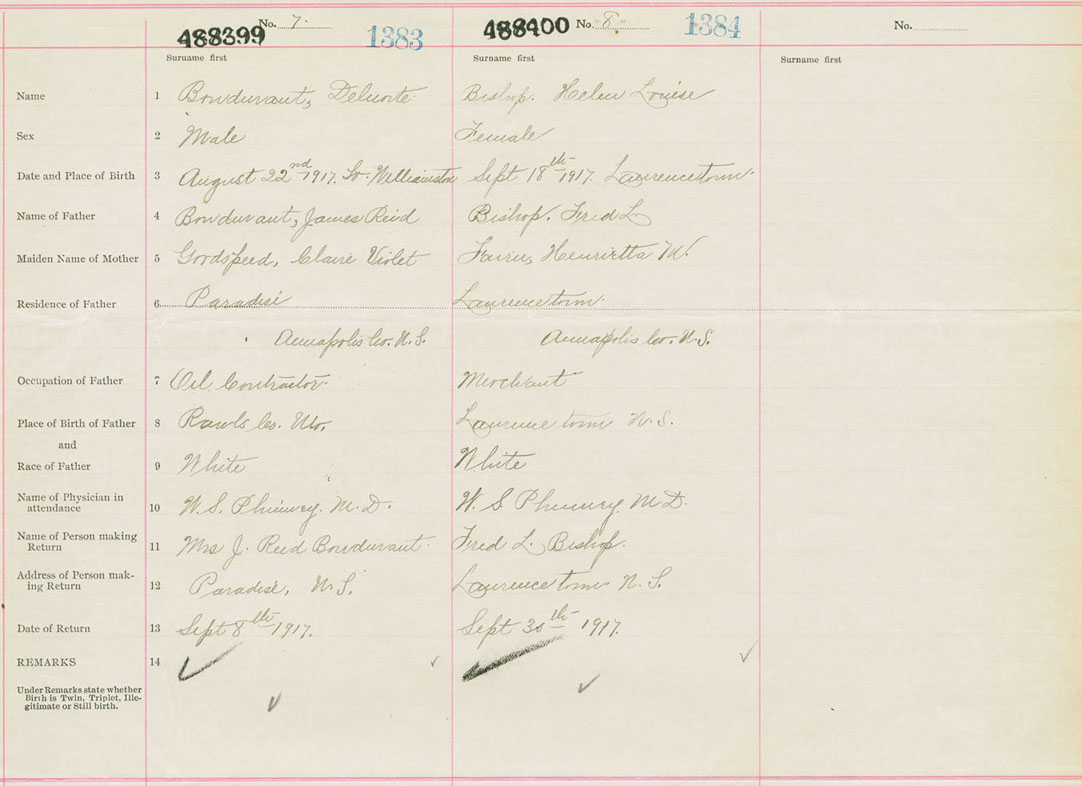 488399 No. 7. 1383 488400 No. 8. 1384 No.
Surname first Surname first Surname first
Name 1 Bowduvant, Bishop. Helen Louise
Sex 2 Male Female
Date and Place of Birth 3 August 22nd 1917. Williamston Sept 18th 1917. Laurencetown.
Name of Father 4 Bowduvant, James Reid Bishop. Fred L.
Maiden Name of Mother 5 Goodspeed, Claire Violet Henrietta M.
Residence of Father 6 Paradise Laurencetown.
Annapolis Co. N.S. Annapolis Co. N.S.
Occupation of Father 7 Oil Contractor. Merchant
Place of Birth of Father 8 Rawls Co. Mo. Laurencetown N.S.
and
Race of Father 9 White White
Name of Physician in
attendance 10 W. S. Phinney. M.D. W. S Phinney M D.
Name of Person making
Return 11 Mrs J. Reid Bowduvant. Fred L. Bishop.
Address of Person mak-
ing Return 12 Paradise, N.S. Laurencetown N.S.
Date of Return 13 Sept 8th 1917. Sept 30th 1917.
REMARKS 14
Under Remarks state whether
Birth is Twin, Triplet, Ille-
gitimate or Still birth.